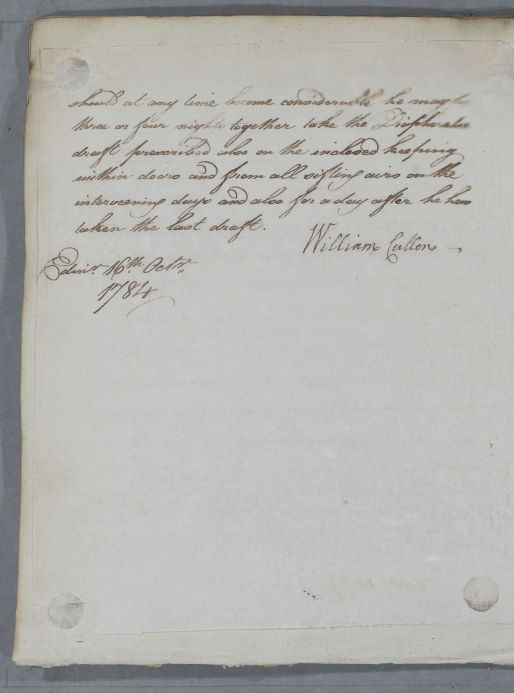 should at any time become considerable he may for
three or four nights together take the Diaphoretic
draft prescribed also on the inclosed keeping
within doors and from all sifting airs on the
interveening days and also for a day after he has
taken the last draft.
William Cullen
Edinr. 16th. Octr.
1784